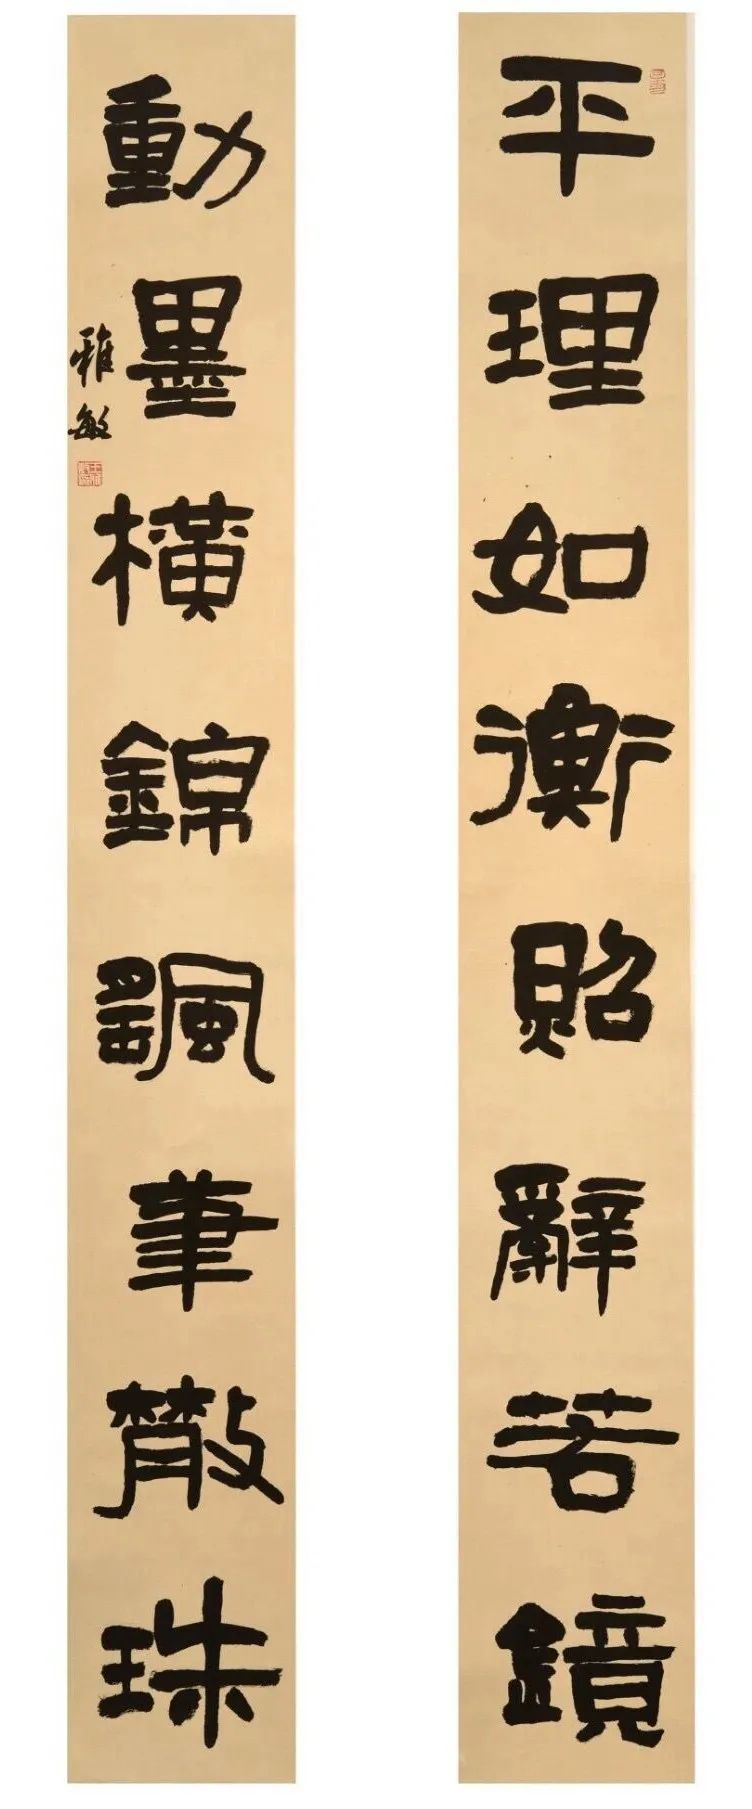 平理如衡照辭若鏡
動墨橫錦颻筆散珠
雅敏